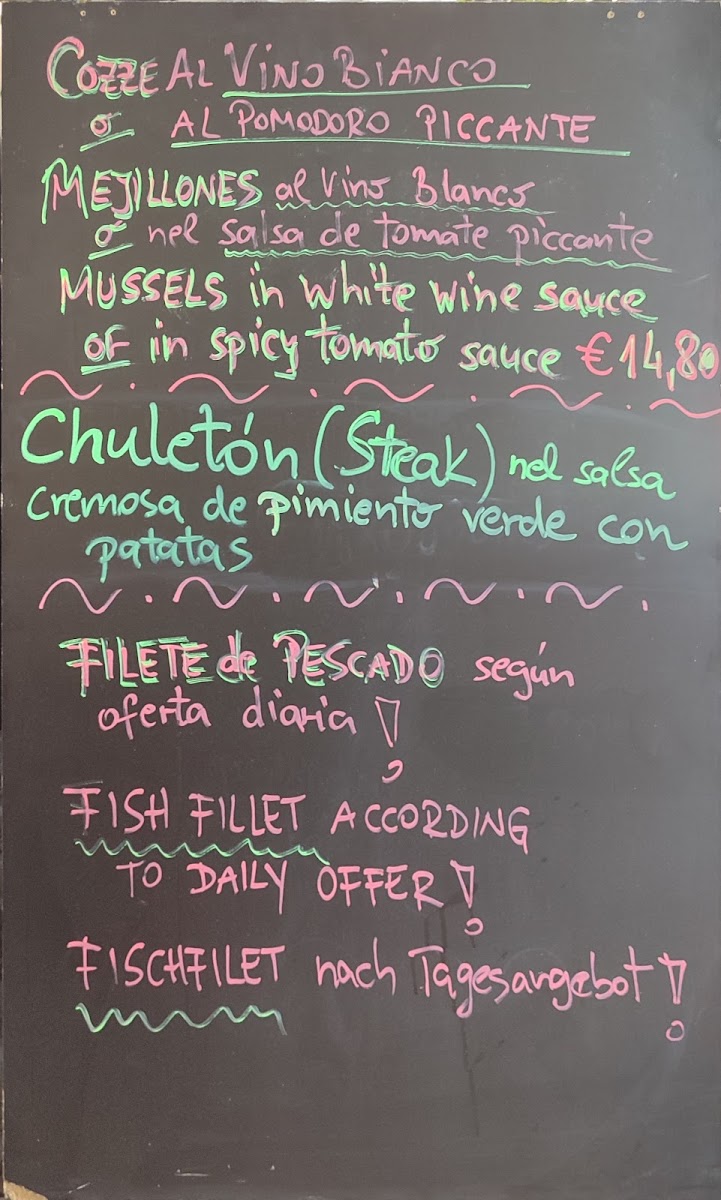 COZZE AL VINO BIANCO
o AL POMODORO PICCANTE
MEJILLONES al Vino Blanco
o nel salsa de tomate piccante
MUSSELS in white wine sauce
or in spicy tomato sauce € 14,80
Chuletón (Steak) nel salsa
cremosa de pimiento verde con
patatas
FILETE de PESCADO según
oferta diaria!
FISH FILLET ACCORDING
TO DAILY OFFER!
FISCHFILET nach Tagesangebot!